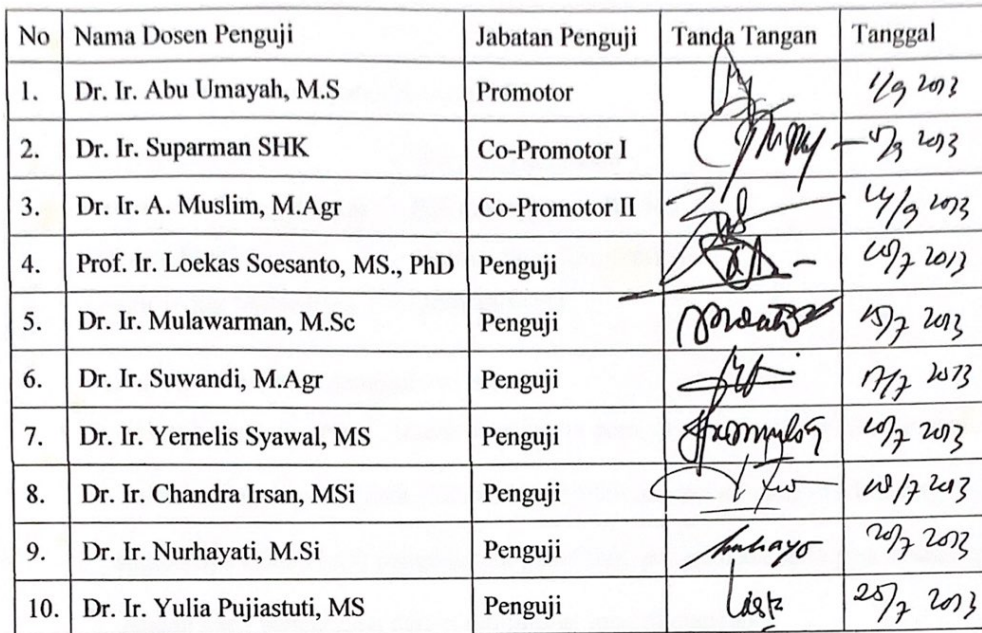 No Nama Dosen Penguji Jabatan Penguji Tanda Tangan Tanggal
1. Dr. Ir. Abu Umayah, M.S Promotor 1/9 2013
2. Dr. Ir. Suparman SHK Co-Promotor I /9 2013
3. Dr. Ir. A. Muslim, M.Agr Co-Promotor II /9 2013
4. Prof. Ir. Loekas Soesanto, MS., PhD Penguji /7 2013
5. Dr. Ir. Mulawarman, M.Sc Penguji 15/7 2013
6. Dr. Ir. Suwandi, M.Agr Penguji 17/7 2013
7. Dr. Ir. Yernelis Syawal, MS Penguji /7 2013
8. Dr. Ir. Chandra Irsan, MSi Penguji /7 2013
9. Dr. Ir. Nurhayati, M.Si Penguji 20/7 2013
10. Dr. Ir. Yulia Pujiastuti, MS Penguji 25/7 2013